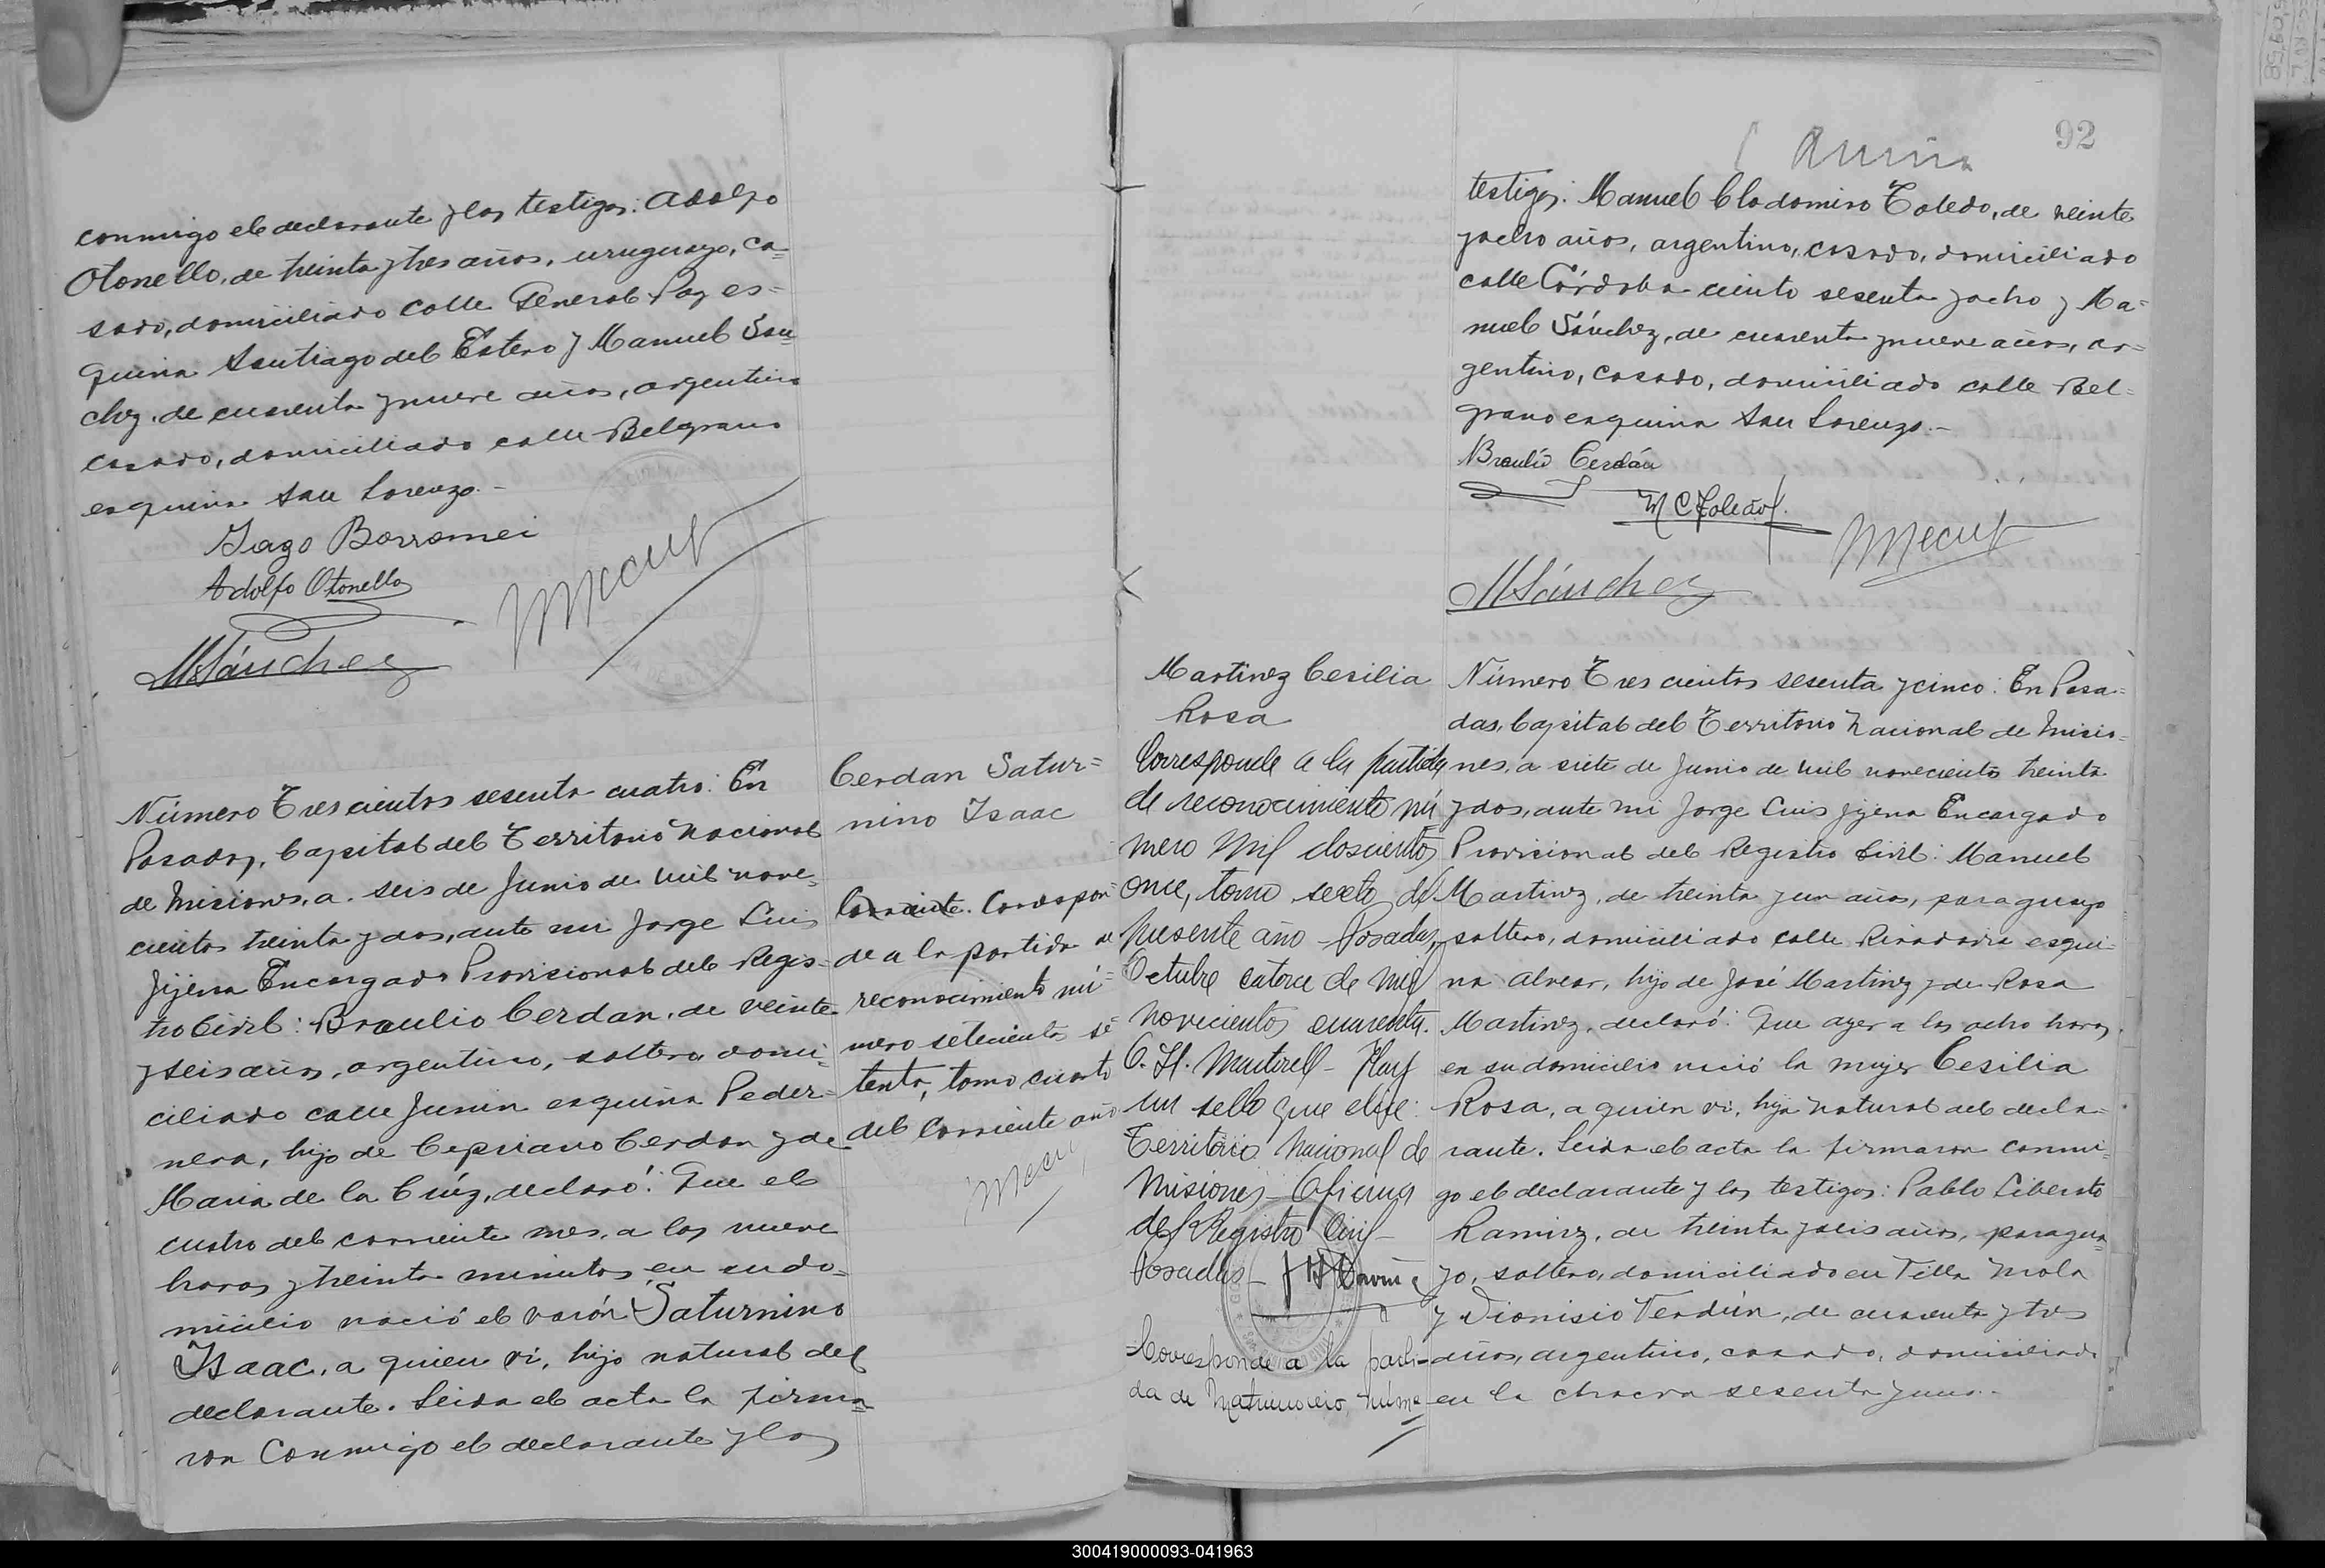 conmigo el declarante y los testigos: Adolfo
Otonello, de treinta y tres años, uruguayo, ca=
sado, domiciliado calle General Paz es=
quina Santiago del Estero y Manuel San
chez, de cuarenta y nueve años, argentino
casado, domiciliado calle Belgrano
esquina San Lorenzo.-
Jago Borromei
Adolfo Otonello
MSánchez
Número Trescientos sesenta cuatro: En
Posadas, Capital del Territorio Nacional
de Misiones, a seis de Junio de mil nove=
cientos treinta y dos, ante mi Jorge Luis
Jijena Encargado Provicional del Regis=
tro Civil: Braulio Cerdan, de veinte
y seis años, argentino, soltero domi=
ciliado calle Junin esquina Peder=
nera, hijo de Cipriano Cerdan y de
Maria de la Crúz, declaró: Que el
cuatro del corriente mes, a las nueve
horas y treinta minutos, en su do=
micilio nació el varón Saturnino
Isaac, a quien vi, hijo natural del
declarante. Leida el acta la firma=
ron conmigo el declarante y los
Cerdan Satur=
nino Isaac
Corriente. Correspon=
de a la partida de
reconocimiento nú=
mero setecientos se
tenta, tomo cuarto
del corriente año
92
testigos: Manuel Clodomiro Toledo, de veinte
y ocho años, argentino, casado, domiciliado
calle Córdoba ciento sesenta y ocho y Ma=
nuel Sánchez, de cuarenta y nueve años, ar=
gentino, casado, domiciliado calle Bel=
grano esquina San Lorenzo.-
Braulio Cerdán
M C Toledo
MSánchez
Martinez Cesilia
Rosa
Corresponde a la partida
de reconocimiento nú
mero mil doscientos
once, tomo sexto del
presente año Posadas,
Octubre catorce de mil
novecientos cuarenta.
C. H. Martorell - Hay
un sello que dice:
Territorio Nacional de
Misiones - Oficina
del Registro Civil -
Posadas -
Corresponde a la parti=
da de Matrimonio, núme
Número Trescientos sesenta y cinco: En Posa=
das, Capital del Territorio Nacional de Misio=
nes, a siete de Junio de mil novecientos treinta
y dos, ante mi Jorge Luis Jijena Encargado
Provicional del Registro Civil: Manuel
Martinez, de treinta y un años, paraguayo
soltero, domiciliado calle Rivadavia esqui=
na Alvear, hijo de José Martinez y de Rosa
Martinez, declaró: Que ayer a las ocho horas,
en su domicilio nació la mujer Cesilia
Rosa, a quien vi, hija natural del decla=
rante. Leida el acta la firmaron conmi=
go el declarante y los testigos: Pablo Liberato
Ramirez, de treinta y seis años, paragua=
yo, soltero, domiciliado en Villa Mola
y Dionisio Verdún, de cuarenta y tres
años, argentino, casado, domiciliado
en la chacra sesenta y uno.-
300419000093-041963